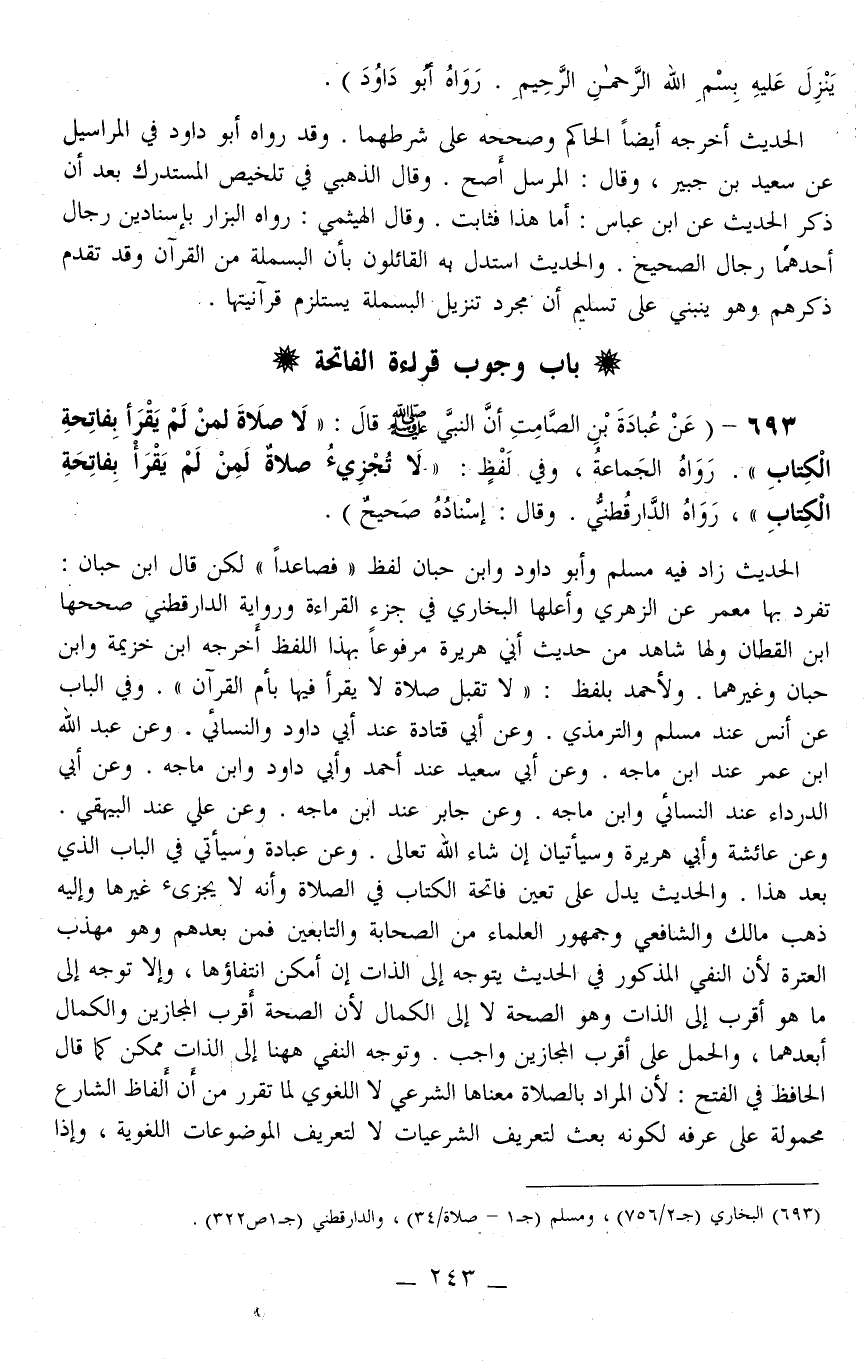 يَنْزِلَ عَليهِ بِسْمِ الله الرَّحمـٰنِ الرَّحِيمِ . رَوَاهُ أَبُو دَاوُدَ ) .
الحديث أخرجه أيضاً الحاكم وصححه على شرطهما . وقد رواه أبو داود في المراسيل
عن سعيد بن جبير ، وقال : المرسل أصح . وقال الذهبي في تلخيص المستدرك بعد أن
ذكر الحديث عن ابن عباس : أما هذا فثابت . وقال الهيثمي : رواه البزار بإسنادين رجال
أحدهما رجال الصحيح . والحديث استدل به القائلون بأن البسملة من القرآن وقد تقدم
ذكرهم وهو ينبني على تسليم أن مجرد تنزيل البسملة يستلزم قرآنيتها .
باب وجوب قراءة الفاتحة
٦٩٣ - ( عَنْ عُبادَةَ بْنِ الصَّامِتِ أنَّ النبيَّ ﷺ قالَ : « لَا صلَاةَ لمنْ لَمْ يَقْرَأ بِفاتِحةِ
الْكِتابِ » . رَوَاهُ الجَماعةُ ، وفي لَفْظٍ : « لَا تُجْزِيءُ صلاةٌ لَمِنْ لَمْ يَقْرَأْ بِفاتِحَةِ
الْكِتابِ » ، رَوَاهُ الدَّارقُطنيُّ . وقال : إسْنادُهُ صَحيحٌ ) .
الحديث زاد فيه مسلم وأبو داود وابن حبان لفظ « فصاعداً » لكن قال ابن حبان :
تفرد بها معمر عن الزهري وأعلها البخاري في جزء القراءة ورواية الدارقطني صححها
ابن القطان ولها شاهد من حديث أبي هريرة مرفوعاً بهذا اللفظ أخرجه ابن خزيمة وابن
حبان وغيرهما . ولأحمد بلفظ : « لا تقبل صلاة لا يقرأ فيها بأم القرآن » . وفي الباب
عن أنس عند مسلم والترمذي . وعن أبي قتادة عند أبي داود والنسائي . وعن عبد الله
ابن عمر عند ابن ماجه . وعن أبي سعيد عند أحمد وأبي داود وابن ماجه . وعن أبي
الدرداء عند النسائي وابن ماجه . وعن جابر عند ابن ماجه . وعن علي عند البيهقي .
وعن عائشة وأبي هريرة وسيأتيان إن شاء الله تعالى . وعن عبادة وسيأتي في الباب الذي
بعد هذا . والحديث يدل على تعين فاتحة الكتاب في الصلاة وأنه لا يجزىء غيرها وإليه
ذهب مالك والشافعي وجمهور العلماء من الصحابة والتابعين فمن بعدهم وهو مهذب
العترة لأن النفي المذكور في الحديث يتوجه إلى الذات إن أمكن انتفاؤها ، وإلا توجه إلى
ما هو أقرب إلى الذات وهو الصحة لا إلى الكمال لأن الصحة أقرب المجازين والكمال
أبعدهما ، والحمل على أقرب المجازين واجب . وتوجه النفي ههنا إلى الذات ممكن كما قال
الحافظ في الفتح : لأن المراد بالصلاة معناها الشرعي لا اللغوي لما تقرر من أن ألفاظ الشارع
محمولة على عرفه لكونه بعث لتعريف الشرعيات لا لتعريف الموضوعات اللغوية ، وإذا
(٦٩٣) البخاري (جـ٧٥٦/٢) ، ومسلم (جـ١ - صلاة/٣٤) ، والدارقطني (جـ١ص٣٢٢) .
— ٢٤٣ —